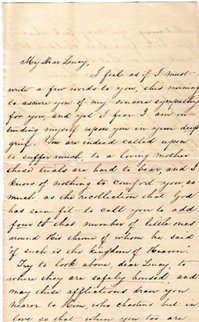 My dear Lenay,
I feel as if I must
write a few words to you, this morning
to assure you of my sincere sympathy
for you, and yet I fear I am in-
truding myself upon you in your deep
grief. You are indeed called upon
to suffer much, to a loving Mother
these trials are hard to bear, and I
know of nothing to comfort you so
much as the recollection that God
has seen fit to call you to add
four to that number of little ones
around His throne of whom he said
"of such is the kingdom of Heaven".
Try to look above dear Lenay, to
where they are safely housed and
may these afflictions draw you
nearer to Him, who chastens but in
love so that when you too are